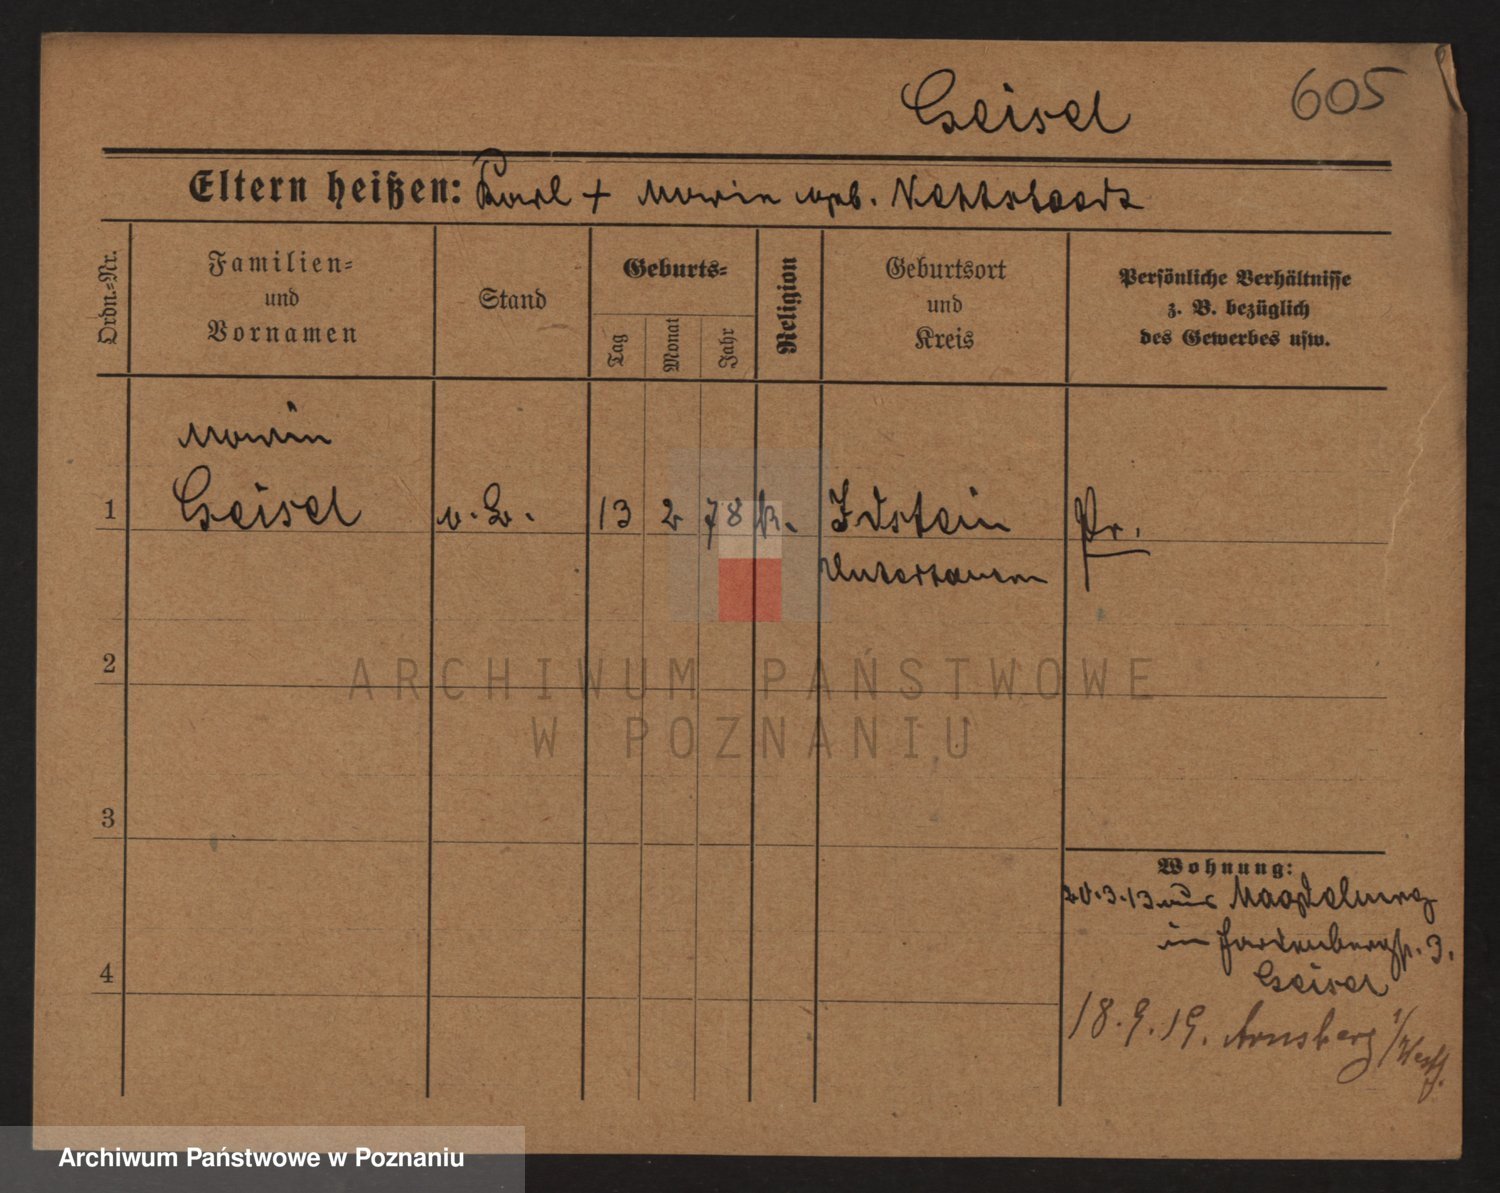 Geisel
605
Eltern heißen: Karl + Maria geb.
Ordn.=Nr.
Familien=
und
Vornamen
Stand
Geburts=
Tag
Monat
Jahr
Religion
Geburtsort
und
Kreis
Persönliche Verhältnisse
z. B. bezüglich
des Gewerbes usw.
Maria
1 Geisel 13 2 78 k. Idstein Pr.
Untertaunus
2
3
4
Wohnung:
20.3.13 aus Magdeburg
in 3.
Geisel
18.9.19. Arnsberg i/Westf.
ARCHIWUM PAŃSTWOWE
W POZNANIU
Archiwum Państwowe w Poznaniu